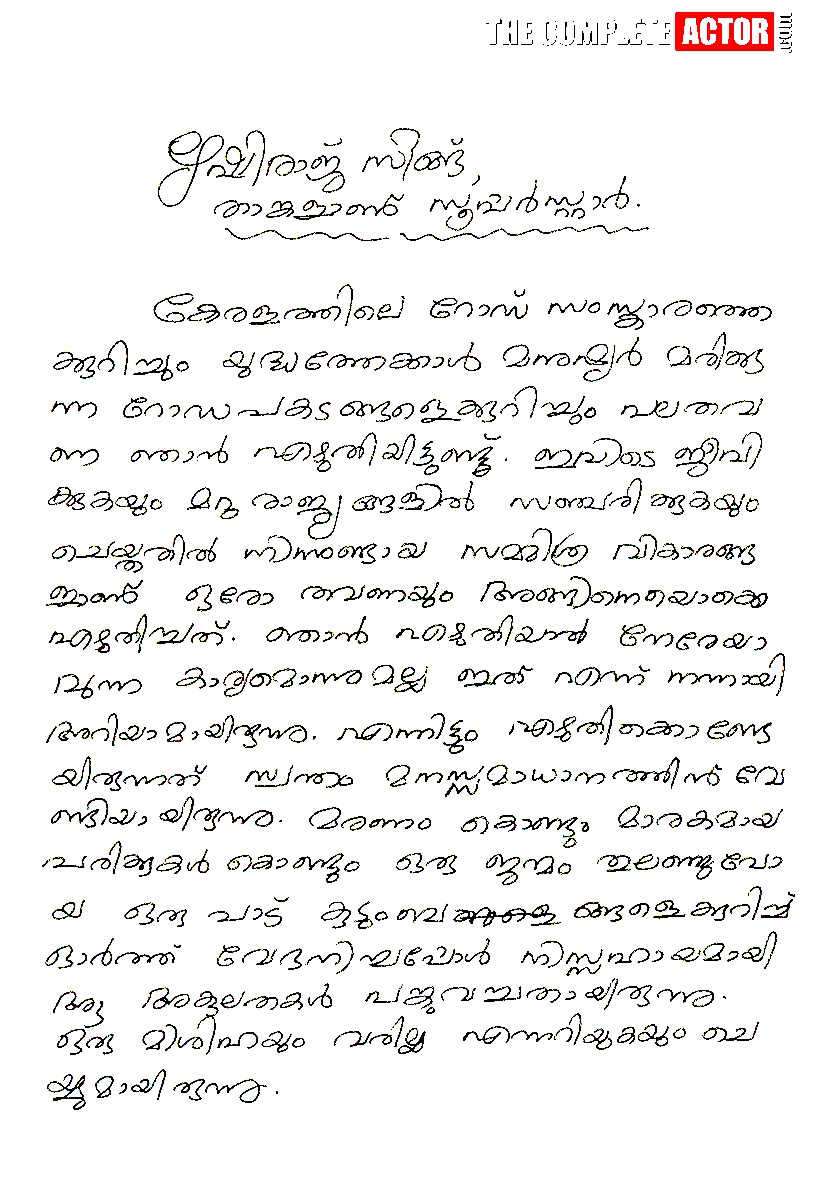 THE COMPLETE ACTOR
ഋഷിരാജ് സിങ്ങ്,
താങ്കളാണ് സൂപ്പർസ്റ്റാർ.
കേരളത്തിലെ റോഡ് സംസ്കാരത്തെ
ക്കുറിച്ചും യുദ്ധത്തേക്കാൾ മനുഷ്യർ മരിക്കു
ന്ന റോഡപകടങ്ങളെക്കുറിച്ചും പലതവ
ണ ഞാൻ എഴുതിയിട്ടുണ്ട്. ഇവിടെ ജീവി
ക്കുകയും മറ്റു രാജ്യങ്ങളിൽ സഞ്ചരിക്കുകയും
ചെയ്തതിൽ നിന്നുണ്ടായ സമ്മിശ്ര വികാരങ്ങ
ളാണ് ഒരോ തവണയും അങ്ങിനെയൊക്കെ
എഴുതിച്ചത്. ഞാൻ എഴുതിയാൽ നേരേയാ
വുന്ന കാര്യമൊന്നുമല്ല ഇത് എന്ന് നന്നായി
അറിയാമായിരുന്നു. എന്നിട്ടും എഴുതിക്കൊണ്ടേ
യിരുന്നത് സ്വന്തം മനസ്സമാധാനത്തിന് വേ
ണ്ടിയായിരുന്നു. മരണം കൊണ്ടും മാരകമായ
പരിക്കുകൾ കൊണ്ടും ഒരു ജന്മം തുലഞ്ഞുപോ
യ ഒരു പാട് കുടുംബ ങ്ങളെക്കുറിച്ച്
ഓർത്ത് വേദനിച്ചപ്പോൾ നിസ്സഹായമായി
ആ ആകുലതകൾ പങ്കുവച്ചതായിരുന്നു.
ഒരു മിശിഹയും വരില്ല എന്നറിയുകയും ചെ
യ്തുമായിരുന്നു.